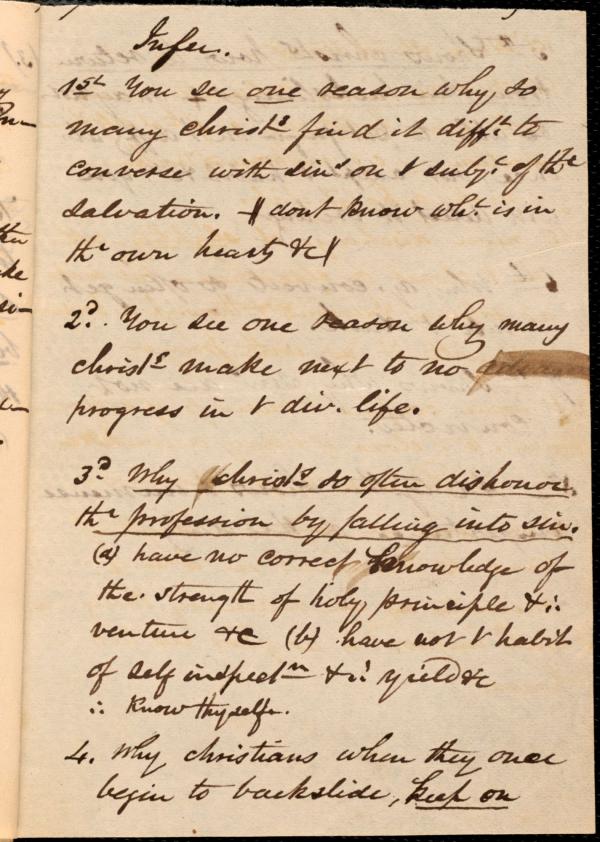 Infer.
1st You see one reason why so
many christs find it difft to
converse with sins on t subjt of the
salvation. dont know wht is in
thr own hearts &c
2d. You see one reason why many
christs make next to no
progress in t div. life.
3d Why christs so often dishonor
thr profession by falling into sin.
(a) have no correct knowledge of
the strength of holy principle & ∴
venture &c (b) have not t habit
of self inspectn & ∴ yield &c
∴ Know thyself.
4. Why christians when they once
begin to backslide, keep on